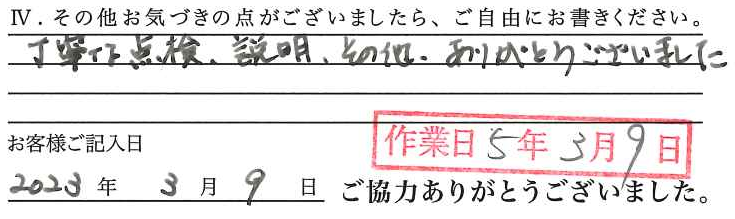 Ⅳ．その他お気づきの点がございましたら、ご自由にお書きください。
丁寧な点検、説明、その他、ありがとうございました
お客様ご記入日
作業日5年3月9日
2023年3月9日
ご協力ありがとうございました。